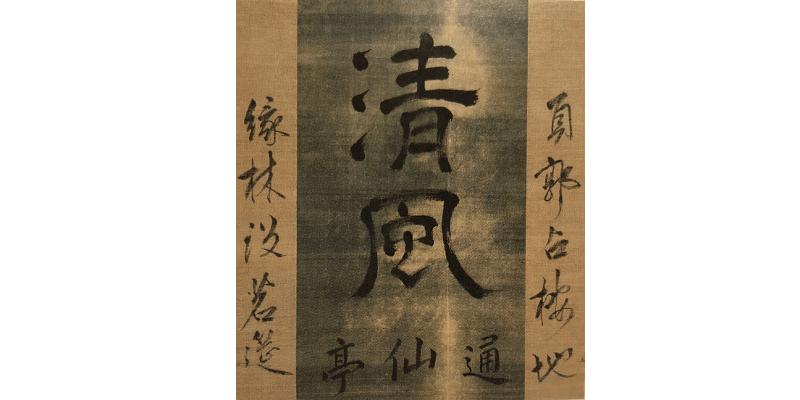 負郭占棲地
清風
通仙亭
緣林設茗筵